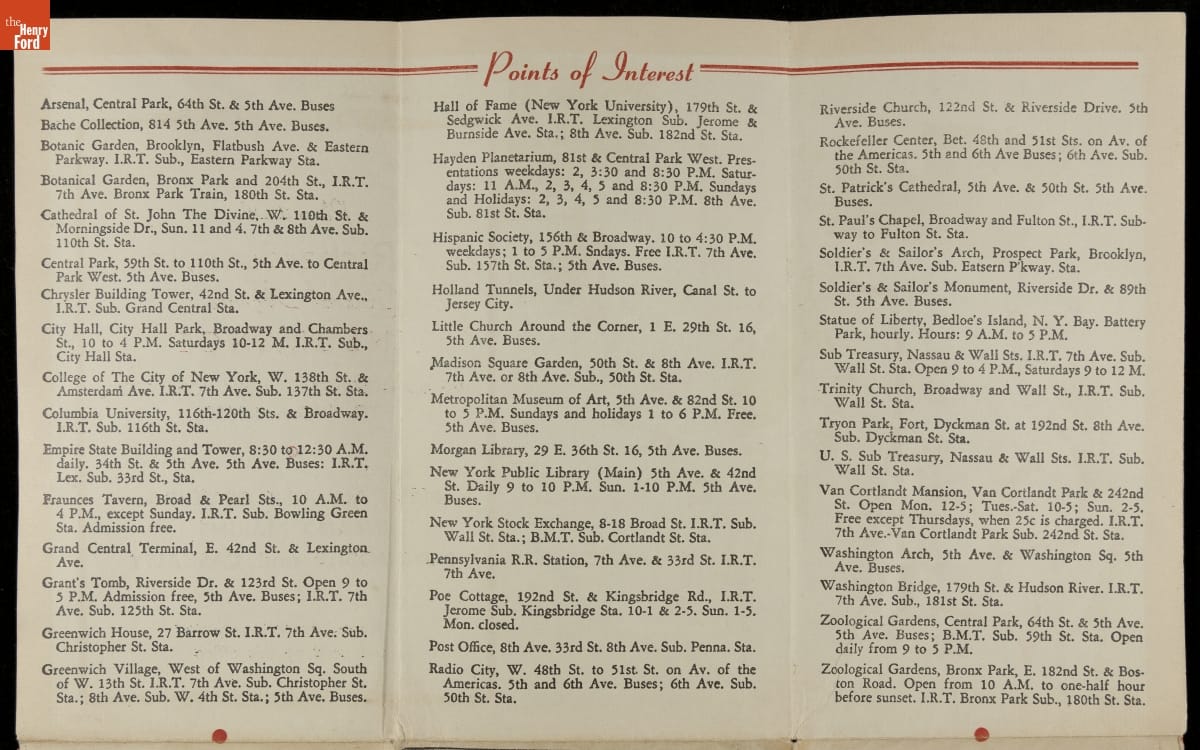 the
Henry
Ford
Points of Interest
Arsenal, Central Park, 64th St. & 5th Ave. Buses
Bache Collection, 814 5th Ave. 5th Ave. Buses.
Botanic Garden, Brooklyn, Flatbush Ave. & Eastern
Parkway. I.R.T. Sub., Eastern Parkway Sta.
Botanical Garden, Bronx Park and 204th St., I.R.T.
7th Ave. Bronx Park Train, 180th St. Sta.
Cathedral of St. John The Divine, W. 110th St. &
Morningside Dr., Sun. 11 and 4. 7th & 8th Ave. Sub.
110th St. Sta.
Central Park, 59th St. to 110th St., 5th Ave. to Central
Park West. 5th Ave. Buses.
Chrysler Building Tower, 42nd St. & Lexington Ave.,
I.R.T. Sub. Grand Central Sta.
City Hall, City Hall Park, Broadway and Chambers
St., 10 to 4 P.M. Saturdays 10-12 M. I.R.T. Sub.,
City Hall Sta.
College of The City of New York, W. 138th St. &
Amsterdam Ave. I.R.T. 7th Ave. Sub. 137th St. Sta.
Columbia University, 116th-120th Sts. & Broadway.
I.R.T. Sub. 116th St. Sta.
Empire State Building and Tower, 8:30 to 12:30 A.M.
daily. 34th St. & 5th Ave. 5th Ave. Buses: I.R.T.
Lex. Sub. 33rd St., Sta.
Fraunces Tavern, Broad & Pearl Sts., 10 A.M. to
4 P.M., except Sunday. I.R.T. Sub. Bowling Green
Sta. Admission free.
Grand Central Terminal, E. 42nd St. & Lexington
Ave.
Grant's Tomb, Riverside Dr. & 123rd St. Open 9 to
5 P.M. Admission free, 5th Ave. Buses; I.R.T. 7th
Ave. Sub. 125th St. Sta.
Greenwich House, 27 Barrow St. I.R.T. 7th Ave. Sub.
Christopher St. Sta.
Greenwich Village, West of Washington Sq. South
of W. 13th St. I.R.T. 7th Ave. Sub. Christopher St.
Sta.; 8th Ave. Sub. W. 4th St. Sta.; 5th Ave. Buses.
Hall of Fame (New York University), 179th St. &
Sedgwick Ave. I.R.T. Lexington Sub. Jerome &
Burnside Ave. Sta.; 8th Ave. Sub. 182nd St. Sta.
Hayden Planetarium, 81st & Central Park West. Pres-
entations weekdays: 2, 3:30 and 8:30 P.M. Satur-
days: 11 A.M., 2, 3, 4, 5 and 8:30 P.M. Sundays
and Holidays: 2, 3, 4, 5 and 8:30 P.M. 8th Ave.
Sub. 81st St. Sta.
Hispanic Society, 156th & Broadway. 10 to 4:30 P.M.
weekdays; 1 to 5 P.M. Sndays. Free I.R.T. 7th Ave.
Sub. 157th St. Sta.; 5th Ave. Buses.
Holland Tunnels, Under Hudson River, Canal St. to
Jersey City.
Little Church Around the Corner, 1 E. 29th St. 16,
5th Ave. Buses.
Madison Square Garden, 50th St. & 8th Ave. I.R.T.
7th Ave. or 8th Ave. Sub., 50th St. Sta.
Metropolitan Museum of Art, 5th Ave. & 82nd St. 10
to 5 P.M. Sundays and holidays 1 to 6 P.M. Free.
5th Ave. Buses.
Morgan Library, 29 E. 36th St. 16, 5th Ave. Buses.
New York Public Library (Main) 5th Ave. & 42nd
St. Daily 9 to 10 P.M. Sun. 1-10 P.M. 5th Ave.
Buses.
New York Stock Exchange, 8-18 Broad St. I.R.T. Sub.
Wall St. Sta.; B.M.T. Sub. Cortlandt St. Sta.
Pennsylvania R.R. Station, 7th Ave. & 33rd St. I.R.T.
7th Ave.
Poe Cottage, 192nd St. & Kingsbridge Rd., I.R.T.
Jerome Sub. Kingsbridge Sta. 10-1 & 2-5. Sun. 1-5.
Mon. closed.
Post Office, 8th Ave. 33rd St. 8th Ave. Sub. Penna. Sta.
Radio City, W. 48th St. to 51st St. on Av. of the
Americas. 5th and 6th Ave. Buses; 6th Ave. Sub.
50th St. Sta.
Riverside Church, 122nd St. & Riverside Drive. 5th
Ave. Buses.
Rockefeller Center, Bet. 48th and 51st Sts. on Av. of
the Americas. 5th and 6th Ave Buses; 6th Ave. Sub.
50th St. Sta.
St. Patrick's Cathedral, 5th Ave. & 50th St. 5th Ave.
Buses.
St. Paul's Chapel, Broadway and Fulton St., I.R.T. Sub-
way to Fulton St. Sta.
Soldier's & Sailor's Arch, Prospect Park, Brooklyn,
I.R.T. 7th Ave. Sub. Eatsern P'kway. Sta.
Soldier's & Sailor's Monument, Riverside Dr. & 89th
St. 5th Ave. Buses.
Statue of Liberty, Bedloe's Island, N. Y. Bay. Battery
Park, hourly. Hours: 9 A.M. to 5 P.M.
Sub Treasury, Nassau & Wall Sts. I.R.T. 7th Ave. Sub.
Wall St. Sta. Open 9 to 4 P.M., Saturdays 9 to 12 M.
Trinity Church, Broadway and Wall St., I.R.T. Sub.
Wall St. Sta.
Tryon Park, Fort, Dyckman St. at 192nd St. 8th Ave.
Sub. Dyckman St. Sta.
U. S. Sub Treasury, Nassau & Wall Sts. I.R.T. Sub.
Wall St. Sta.
Van Cortlandt Mansion, Van Cortlandt Park & 242nd
St. Open Mon. 12-5; Tues.-Sat. 10-5; Sun. 2-5.
Free except Thursdays, when 25c is charged. I.R.T.
7th Ave.-Van Cortlandt Park Sub. 242nd St. Sta.
Washington Arch, 5th Ave. & Washington Sq. 5th
Ave. Buses.
Washington Bridge, 179th St. & Hudson River. I.R.T.
7th Ave. Sub., 181st St. Sta.
Zoological Gardens, Central Park, 64th St. & 5th Ave.
5th Ave. Buses; B.M.T. Sub. 59th St. Sta. Open
daily from 9 to 5 P.M.
Zoological Gardens, Bronx Park, E. 182nd St. & Bos-
ton Road. Open from 10 A.M. to one-half hour
before sunset. I.R.T. Bronx Park Sub., 180th St. Sta.